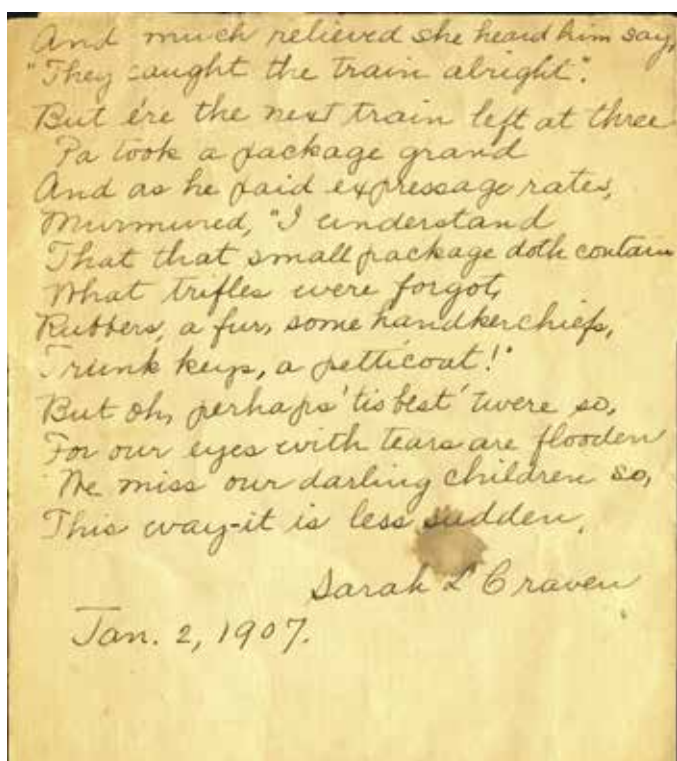 And much relieved she heard him say,
"They caught the train alright".
But e're the next train left at three
Pa took a package grand
And as he paid expressage rates,
Murmured, "I understand
That that small package doth contain
What trifles were forgot,
Rubbers, a fur, some handkerchiefs,
Trunk keys, a petticoat!"
But oh, perhaps 'tis best 'twere so,
For our eyes with tears are flooden
We miss our darling children so,
This way-it is less sudden.
Sarah L Craven
Jan. 2, 1907.